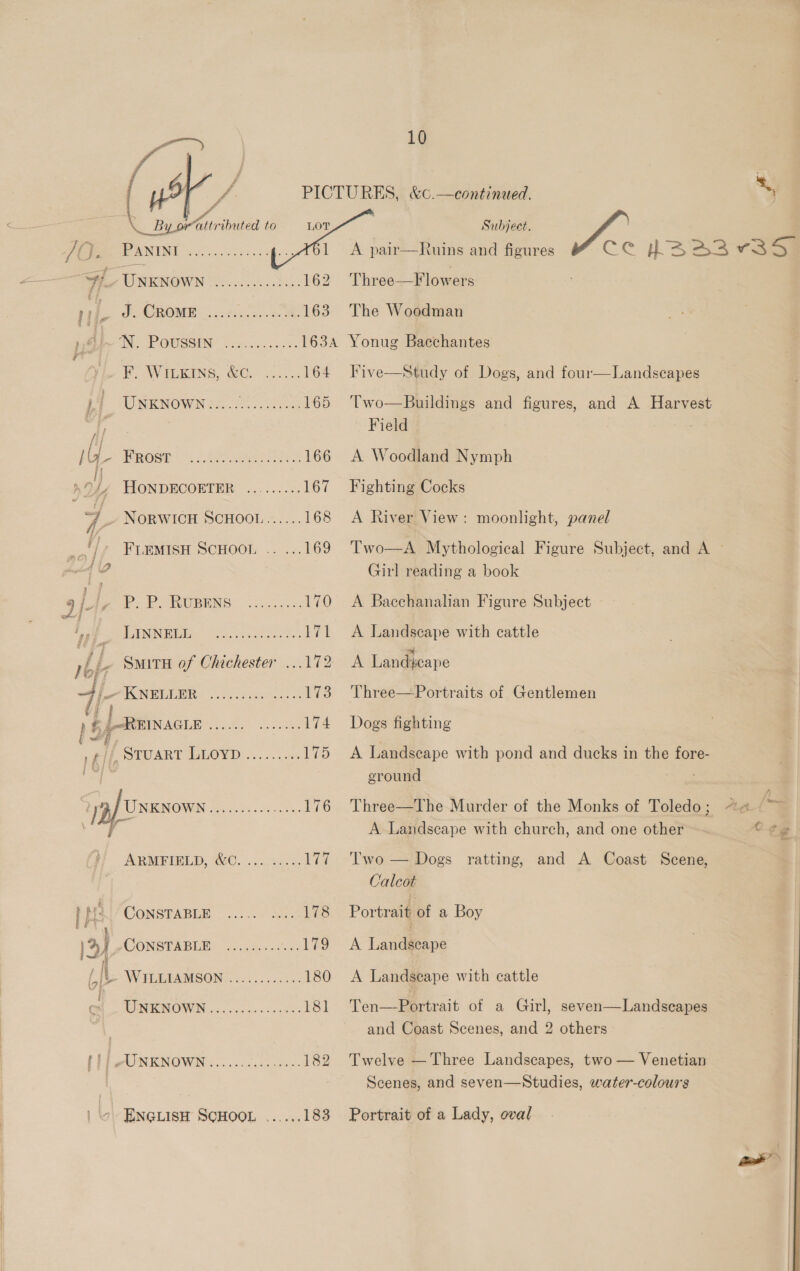 10
PICTURES, &c.—continued.
By or attributed to LOT Subject.
PANINI ............ 161 A pair—Ruins and figures
UNKNOWN ............ 162 Three—Flowers
J. CROME ............ 163 The Woodman
N. POUSSIN ............ 163A Yonug Bacchantes
F. WILKINS, &C. ...... 164 Five—Study of Dogs, and four—Landscapes
UNKNOWN ............ 165 Two—Buildings and figures, and A Harvest
Field
FROST ............ 166 A Woodland Nymph
HONDECOETER .......... 167 Fighting Cocks
NORWICH SCHOOL ...... 168 A River View: moonlight, panel
FLEMISH SCHOOL ...... 169 Two—A Mythological Figure Subject, and A
Girl reading a book
P. P. RUBENS .......... 170 A Bacchanalian Figure Subject
LINNELL ............ 171 A Landscape with cattle
SMITH of Chichester ... 172 A Landscape
KNELLER ............ 173 Three—Portraits of Gentlemen
REINAGLE ............ 174 Dogs fighting
STUART LLOYD .......... 175 A Landscape with pond and ducks in the fore-
ground
UNKNOWN ............ 176 Three—The Murder of the Monks of Toledo;
A Landscape with church, and one other
ARMFIELD, &C. ........ 177 Two — Dogs ratting, and A Coast Scene,
Calcot
CONSTABLE ............ 178 Portrait of a Boy
CONSTABLE ............ 179 A Landscape
WILLIAMSON ............ 180 A Landscape with cattle
UNKNOWN ............ 181 Ten—Portrait of a Girl, seven—Landscapes
and Coast Scenes, and 2 others
UNKNOWN ............ 182 Twelve — Three Landscapes, two — Venetian
Scenes, and seven—Studies, water-colours
ENGLISH SCHOOL ...... 183 Portrait of a Lady, oval